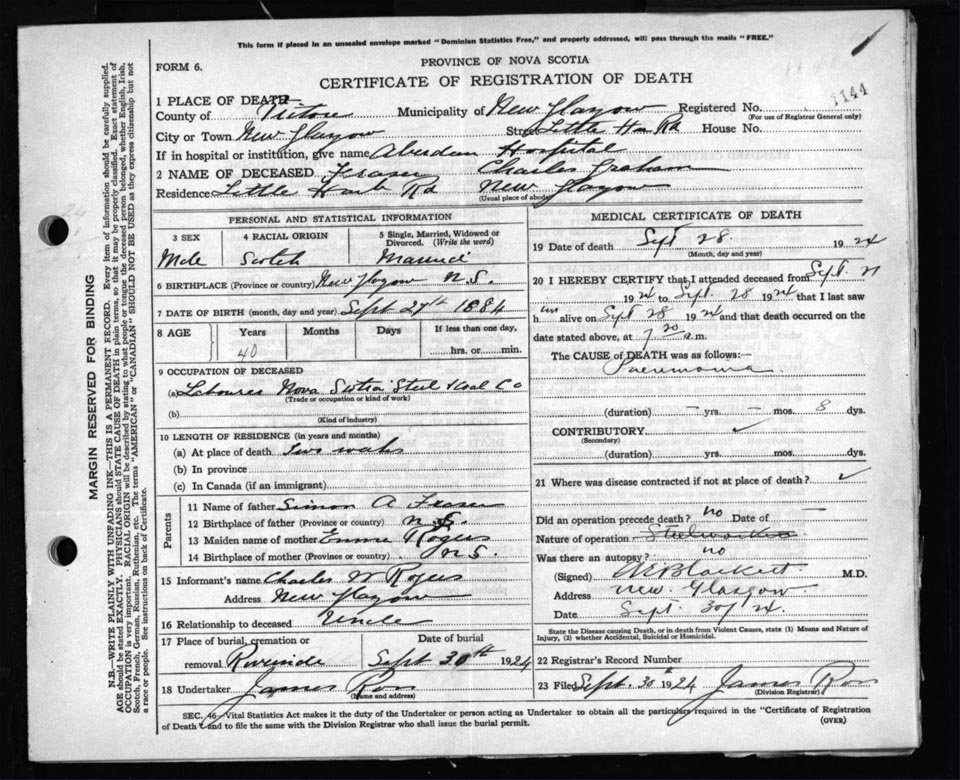 This form if placed in an unsealed envelope marked "Dominion Statistics Free," and properly addressed, will pass through the mails "FREE."
FORM 6.
PROVINCE OF NOVA SCOTIA
CERTIFICATE OF REGISTRATION OF DEATH
1144
1 PLACE OF DEATH
County of Pictou Municipality of New Glasgow Registered No.
(For use of Registrar General only)
City or Town New Glasgow Street Little Har Rd House No.
If in hospital or institution, give name Aberdeen Hospital
2 NAME OF DECEASED Fraser Charles Graham
Residence Little Harb Rd New Glasgow
(Usual place of abode)
PERSONAL AND STATISTICAL INFORMATION
3 SEX
Male
4 RACIAL ORIGIN
Scotch
5 Single, Married, Widowed or Divorced. (Write the word)
Married
6 BIRTHPLACE (Province or country) New Glasgow N.S.
7 DATE OF BIRTH (month, day and year) Sept 27th 1884
8 AGE Years Months Days If less than one day,
40 hrs. or min.
9 OCCUPATION OF DECEASED
(a) Labourer Nova Scotia Steel & Coal Co
(Trade or occupation or kind of work)
(b)
(Kind of industry)
10 LENGTH OF RESIDENCE (in years and months)
(a) At place of death two weeks
(b) In province
(c) In Canada (if an immigrant)
Parents
11 Name of father Simon A Fraser
12 Birthplace of father (Province or country) N.S.
13 Maiden name of mother Emma Rogers
14 Birthplace of mother (Province or country) N.S.
15 Informant's name Charles W Rogers
Address New Glasgow
16 Relationship to deceased Uncle
17 Place of burial, cremation or Date of burial
removal Riverside Sept 30th 1924
18 Undertaker James Ross
(Name and address)
MEDICAL CERTIFICATE OF DEATH
19 Date of death Sept 28 1924
(Month, day and year)
20 I HEREBY CERTIFY that I attended deceased from Sept. 21
1924 to Sept. 28 1924 that I last saw
him alive on Sept 28 1924 and that death occurred on the
date stated above, at 7 20 a.m.
The CAUSE of DEATH was as follows:—
Pneumonia
(duration) — yrs. — mos. 8 dys.
CONTRIBUTORY
(Secondary)
(duration) yrs. mos. dys.
21 Where was disease contracted if not at place of death?
Did an operation precede death? no Date of —
Nature of operation Steelworker
Was there an autopsy? no
(Signed) M.D.
Address New Glasgow
Date Sept. 30/24
State the Disease causing Death, or in death from Violent Causes, state (1) Means and Nature of Injury, (2) whether Accidental, Suicidal or Homicidal.
22 Registrar's Record Number
23 Filed Sept. 30th 1924 James Ross
(Division Registrar)
SEC. 46—Vital Statistics Act makes it the duty of the Undertaker or person acting as Undertaker to obtain all the particulars required in the "Certificate of Registration
of Death" and to file the same with the Division Registrar who shall issue the burial permit.
(OVER)
MARGIN RESERVED FOR BINDING
N.B.—WRITE PLAINLY WITH UNFADING INK—THIS IS A PERMANENT RECORD. Every item of information should be carefully supplied.
AGE should be stated EXACTLY. PHYSICIANS should STATE CAUSE OF DEATH in plain terms, so that it may be properly classified. Exact statement of
OCCUPATION is very important. RACIAL ORIGIN will be described by stating to what people or tongue the deceased person belonged, whether English, Irish,
Scotch, French, German, Russian, Ruthenian, etc. The terms "AMERICAN" or "CANADIAN" SHOULD NOT BE USED as they express citizenship but not
a race or people. See instructions on back of Certificate.